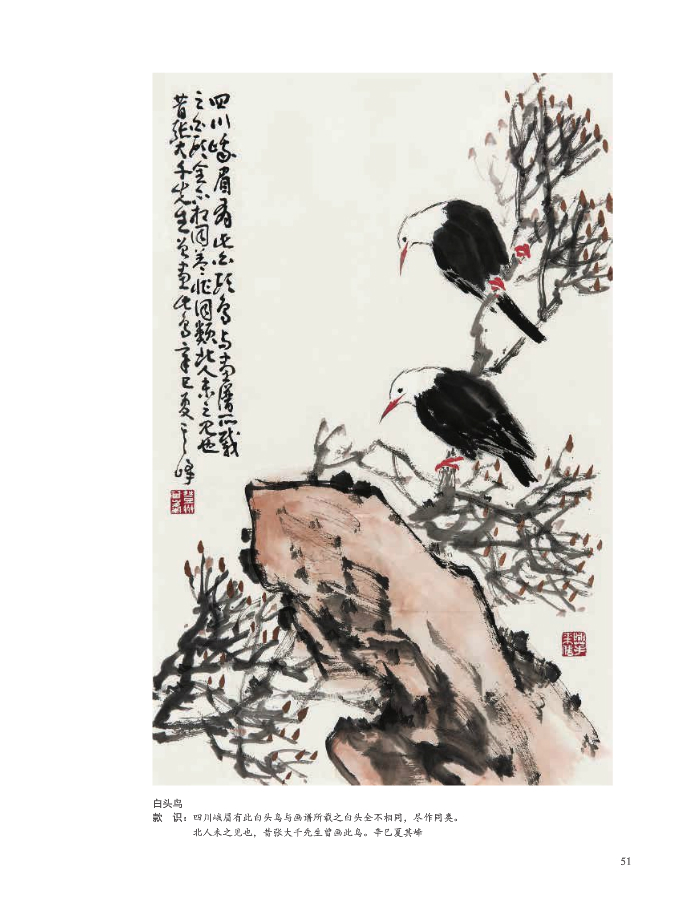 四川峨眉有此白头鸟与画谱所载
之白头全不相同盖非同类北人未之见也
昔张大千先生曾画此鸟辛巳夏其峰
白头鸟
款 识：四川峨眉有此白头鸟与画谱所载之白头全不相同，尽作同类。
北人未之见也，昔张大千先生曾画此鸟。辛巳夏其峰
51